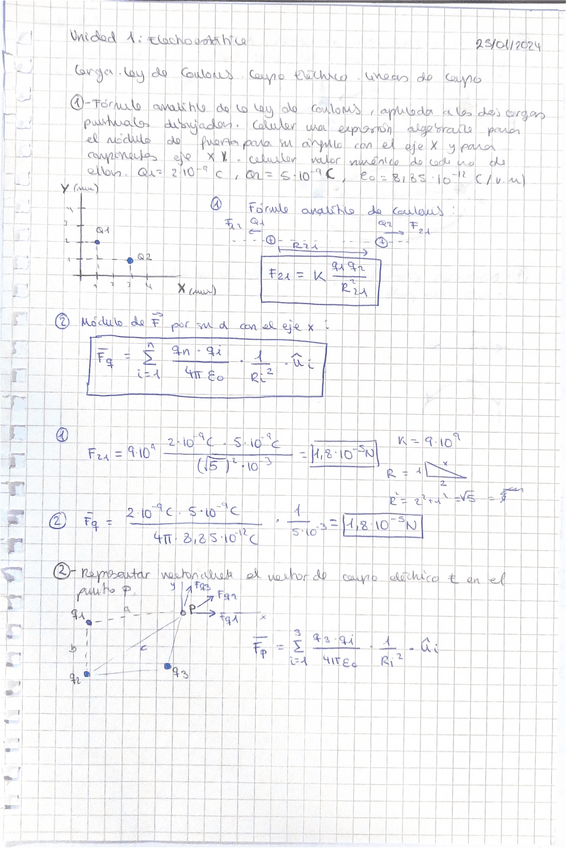 Unidad 1: Electrostática
25/01/2024
Carga. Ley de Coulomb. Campo eléctrico. Líneas de campo
① - Fórmula analítica de la ley de Coulomb, aplicada a las dos cargas
puntuales dibujadas. Calcular una expresión algebraica para
el módulo de fuerza para su ángulo con el eje X y para
componentes eje X Y. Calcular valor numérico de cada uno de
ellos. Q1 = 2·10⁻⁹ C, Q2 = 5·10⁻⁹ C, ε₀ = 8,85·10⁻¹² C/V·m)
Y (mm)
4
3
2
1
Q1
Q2
1 2 3 4
X (mm)
① Fórmula analítica de Coulomb:
F12 Q1 Q2 F21
R21
F21 = K q1 q2 / R²21
② Módulo de F por su α con el eje x:
Fq = Σ i=1 n qn · qi / 4π ε₀ · 1 / Ri² · ûi
① F21 = 9·10⁹ 2·10⁻⁹C · 5·10⁻⁹C / (√5)² · 10⁻³ = 1,8·10⁻⁵N
K = 9·10⁹
R = 1 x 2
R² = 2² + 1² = √5
② Fq = 2·10⁻⁹C · 5·10⁻⁹C / 4π · 8,85·10⁻¹²C · 1 / 5·10⁻³ = 1,8·10⁻⁵N
② - Representar vectorialmente el vector de campo eléctrico t en el
punto P.
q1 a y P Fq3 Fq2 Fq1 x
b c
q2 q3
Fp = Σ i=1 3 q3 · qi / 4πε₀ · 1 / Ri² · ûi